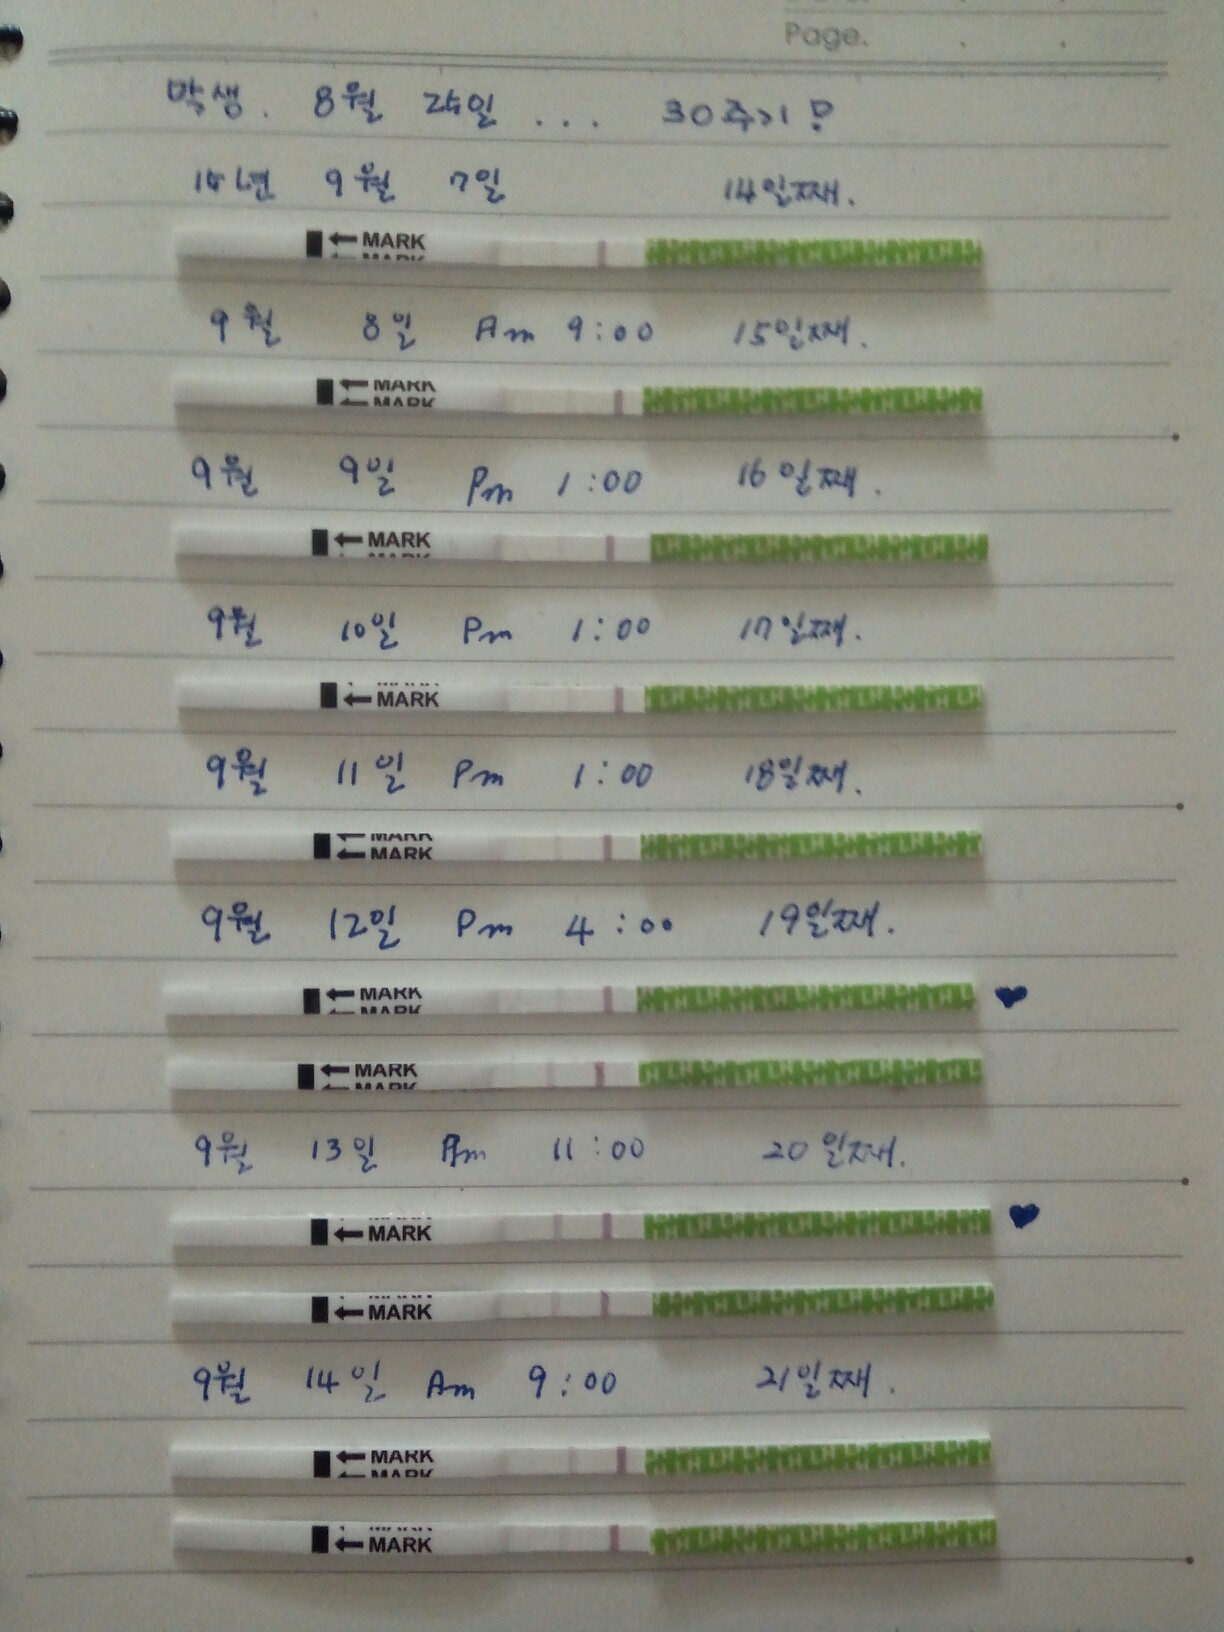 Page.
막생. 8월 25일 ... 30주기!
15년 9월 7일 14일째.
← MARK
9월 8일 Am 9:00 15일째.
← MARK
← MARK
9월 9일 Pm 1:00 16일째.
← MARK
9월 10일 Pm 1:00 17일째.
← MARK
9월 11일 Pm 1:00 18일째.
← MARK
← MARK
9월 12일 Pm 4:00 19일째.
← MARK
← MARK ♥
← MARK
← MARK
9월 13일 Am 11:00 20일째.
← MARK ♥
← MARK
9월 14일 Am 9:00 21일째.
← MARK
← MARK
← MARK